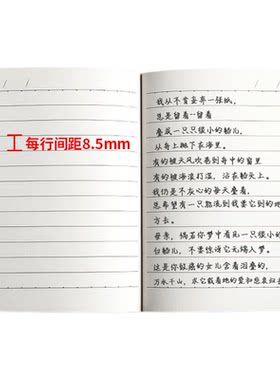 / /
/ /
每行间距8.5mm
我从不肯妄弃一张纸，
总是留着--留着
叠成一只只很小的船儿，
从舟上抛下在海里。
有的被天风吹卷到舟中的窗里，
有的被海浪打湿，沾在船头上。
我仍是不灰心的每天叠着，
总希望有一只能流到我要它到的地
方去。
母亲，倘若你梦中看见一只很小的
白船儿，不要惊讶它无端入梦。
这是你至爱的女儿含着泪叠的，
万水千山，求它载着她的爱和悲哀归